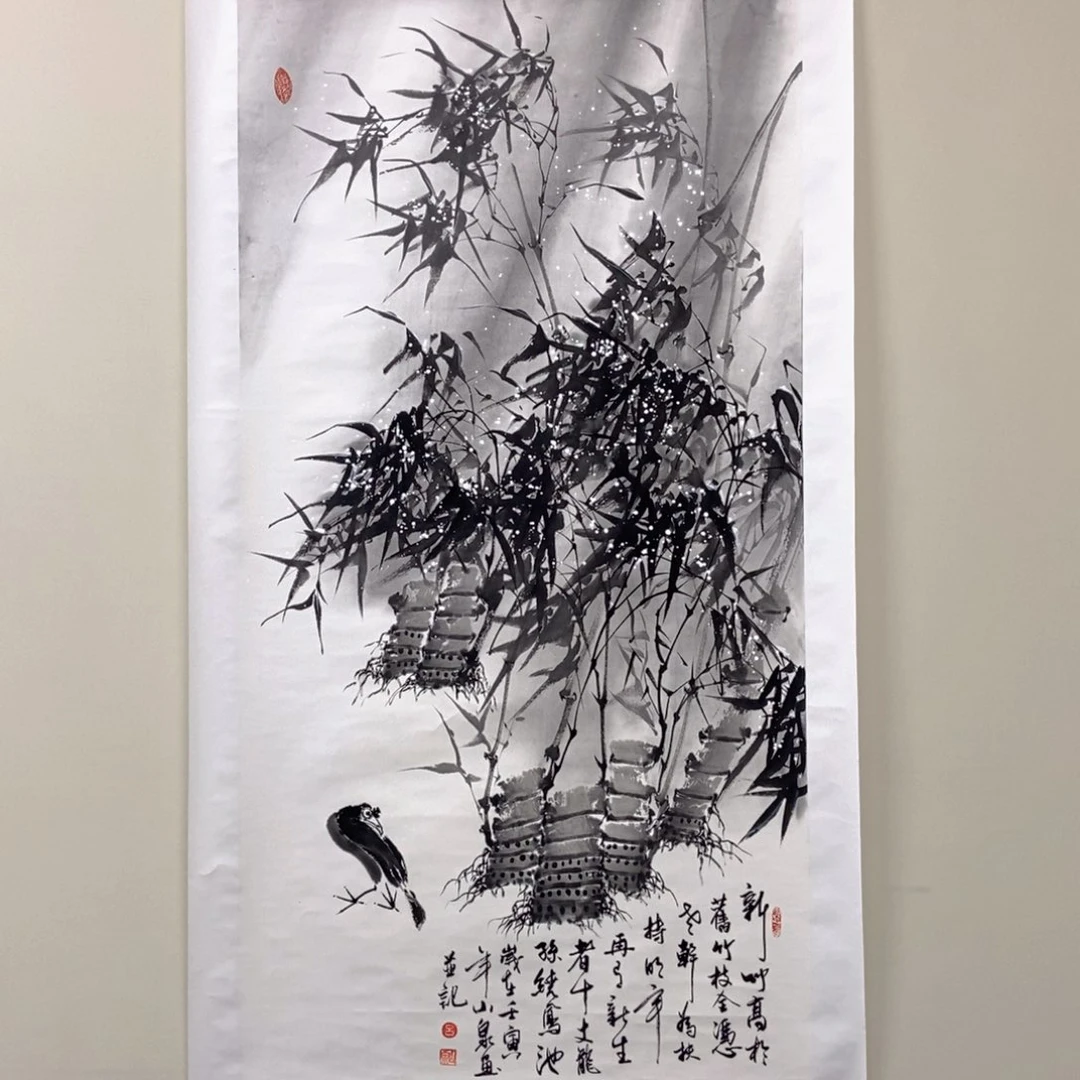 新竹高於
舊竹枝全憑
老幹為扶
持明年
再有新生
者十丈龍
孫繞鳳池
歲在壬寅
年山泉画
並記